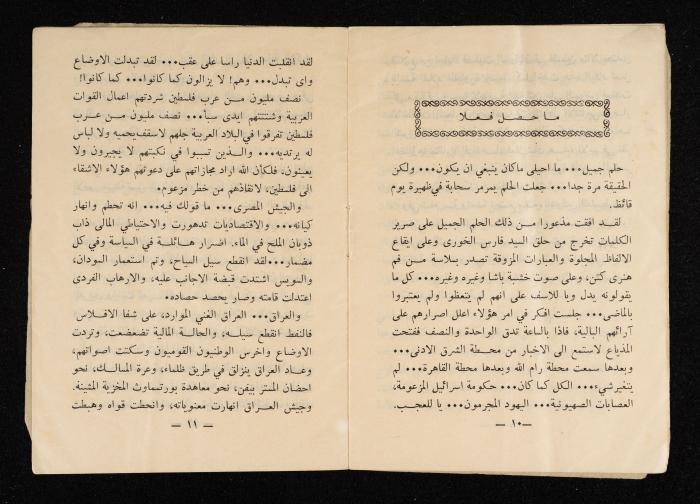 ما حصل فعلا
حلم جميل... ما احيلى ماكان ينبغي ان يكون... ولكن
الحقيقة مرة جدا... جعلت الحلم يمر مر سحابة في ظهيرة يوم
قائظ.
لقد افقت مذعورا من ذلك الحلم الجميل على صرير
الكلمات تخرج من حلق السيد فارس الخورى وعلى ايقاع
الالفاظ المجلوة والعبارات المزوقة تصدر بسلاسة من فم
هنرى كتن، وعلى صوت خشبة باشا وغيره وغيره... كل ما
يقولونه يدل ويا للاسف على انهم لم يتعظوا ولم يعتبروا
بالماضى... جلست افكر في امر هؤلاء اعلل اصرارهم على
آرائهم البالية، فاذا بالساعة تدق الواحدة والنصف ففتحت
المذياع لاستمع الى الاخبار من محطة الشرق الادنى...
وبعدها سمعت محطة رام الله وبعدها محطة القاهرة... لم
يتغير شيء... الكل كما كان... حكومة اسرائيل المزعومة،
العصابات الصهيونية... اليهود المجرمون... يا للعجب.
— ١٠ —
لقد انقلبت الدنيا راسا على عقب... لقد تبدلت الاوضاع
واى تبدل... وهم! لا يزالون كما كانوا... كما كانوا!
نصف مليون من عرب فلسطين شردتهم اعمال القوات
العربية وشتتتهم ايدى سبأ... نصف مليون من عرب
فلسطين تفرقوا في البلاد العربية جلهم لاسقف يحميه ولا لباس
له يرتديه... والذين تسببوا في نكبتهم لا يجيرون ولا
يعينون، فلكأن الله اراد مجازاتهم على دعوتهم هؤلاء الاشقاء
الى فلسطين، لانقاذهم من خطر مزعوم.
والجيش المصرى... ما قولك فيه... انه تحطم وانهار
كيانه... والاقتصاديات تدهورت والاحتياطي المالى ذاب
ذوبان الملح في الماء. اضرار هائلة في السياسة وفي كل
مضمار... لقد انقطع سيل السياح، وتم استعمار السودان،
والسويس اشتدت قبضة الاجانب عليه، والارهاب الفردى
اعتدلت قامته وصار يحصد حصاده.
والعراق... العراق الغني الموارد، على شفا الافلاس
فالنفط انقطع سيله، والحالة المالية تضعضعت، وتردت
الاوضاع واخرس الوطنيون القوميون وسكتت اصواتهم،
وعاد العراق ينزلق في طريق ظلماء، وعرة المسالك، نحو
احضان المستر بيفن، نحو معاهدة بورتسماوث المخزية المشينة.
وجيش العراق انهارت معنوياته، وانحطت قواه وهبطت
— ١١ —